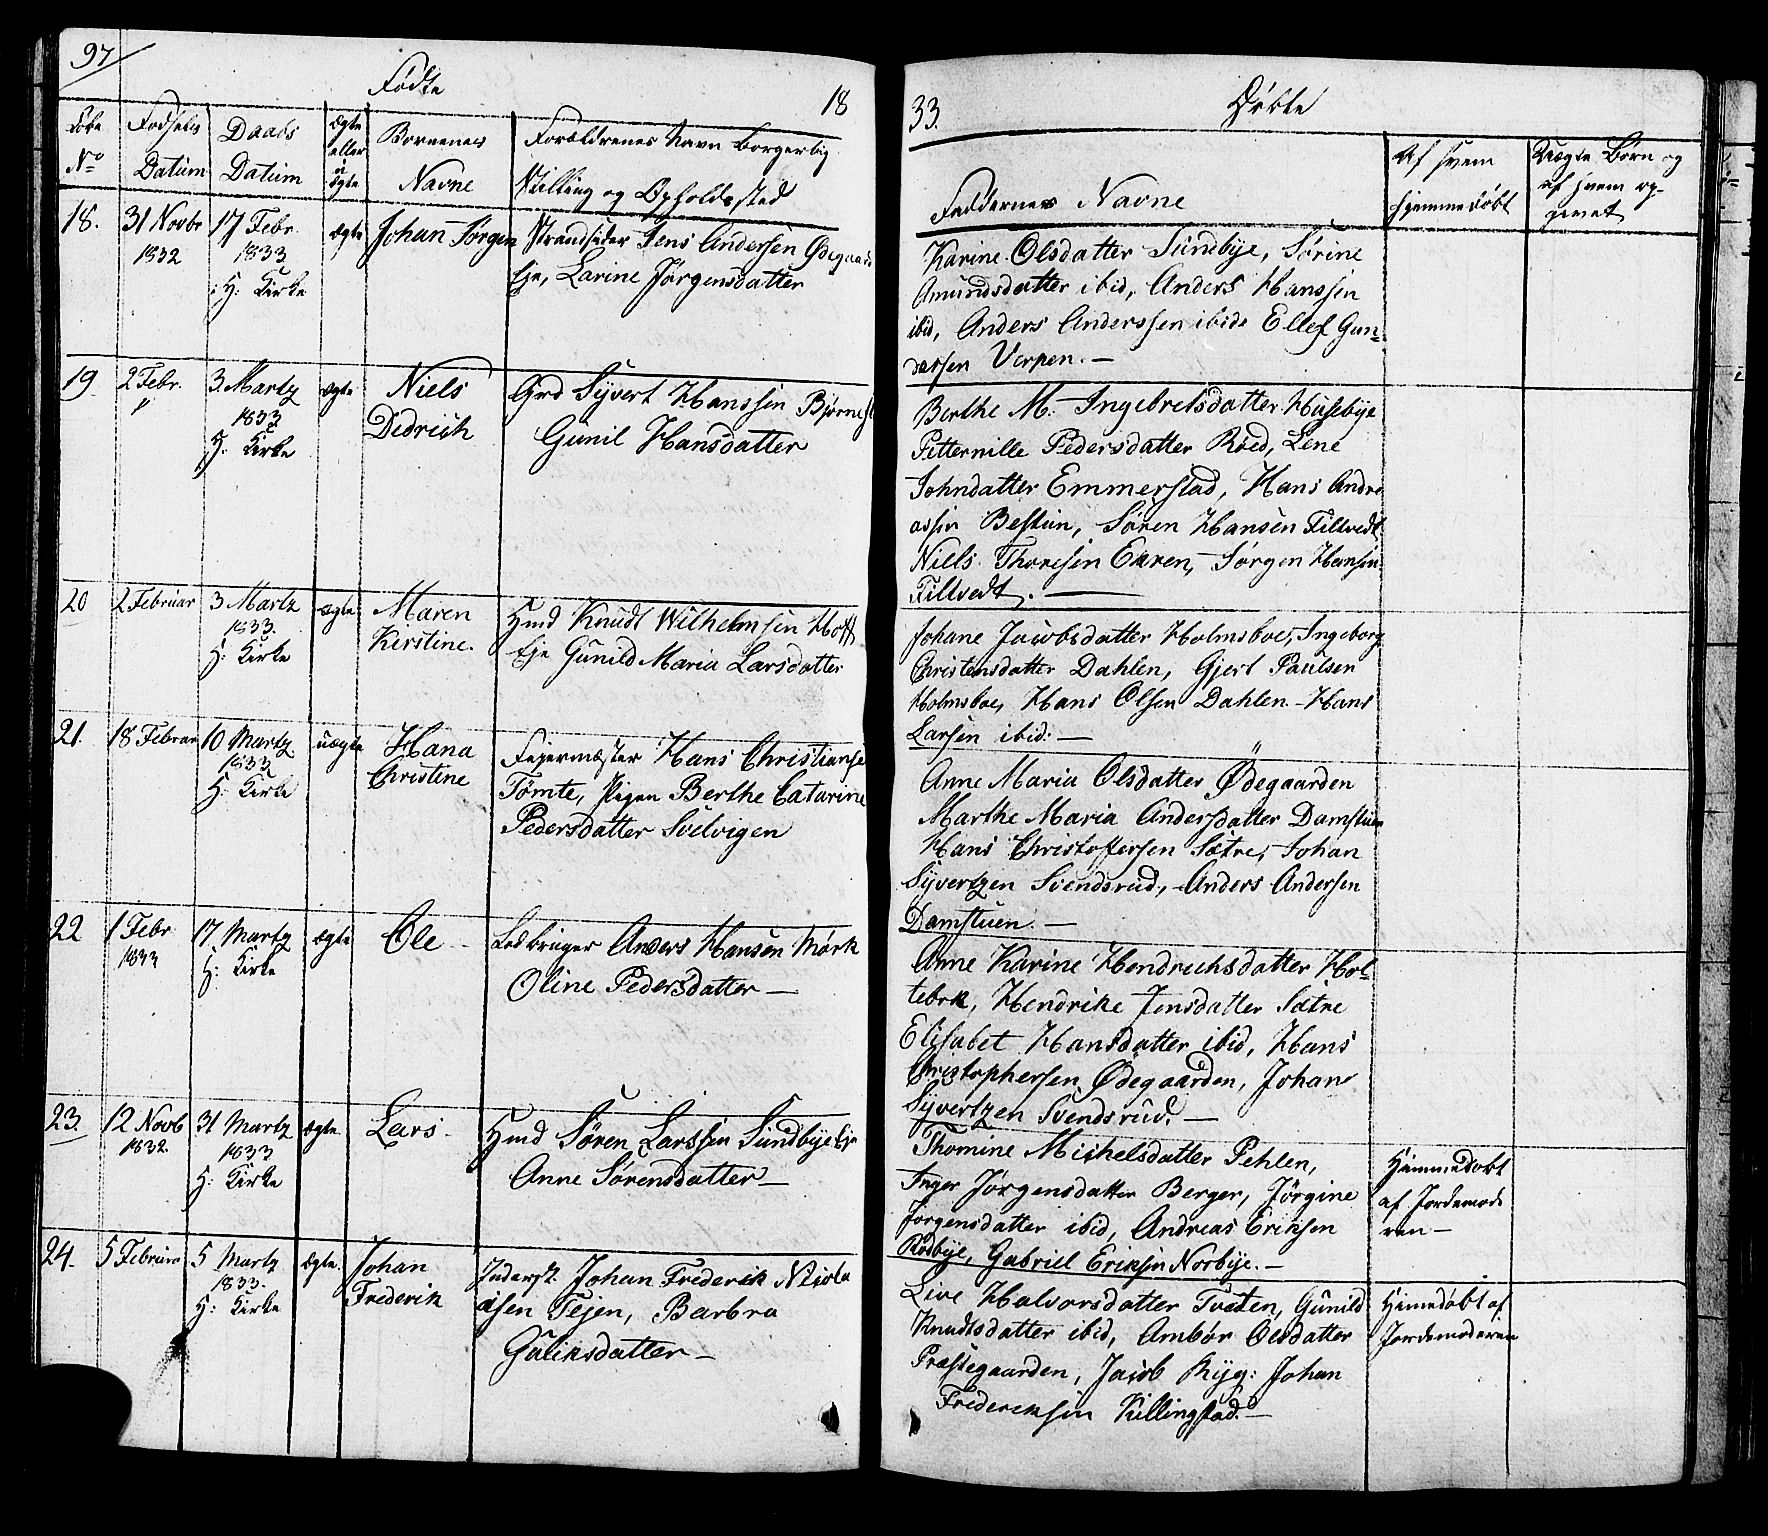 97
Fødte
18
Løbe
No
Fødsels
Datum
Daabs
Datum
Ægte
eller
u
ægte
Børnenes
Navne
Forældrenes Navn borgerlig
Stilling og Opholdssted
18.
31 Novbr
1832
17 Febr.
1833
i H: Kirke
ægte
Johan Jørgen
Strandsider Jens Andersen Ødegaards
Eje, Larine Jørgensdatter
19.
2 Febr.
"
3. Martz
1833
H: Kirke
ægte
Niels
Didrich
Grd Syvert Hanssen
Gunil Hansdatter
20
2 Februar
3 Martz
1833.
H: Kirke
ægte
Maren
Kirstine.
Hmd Knudt Wilhelmsen Hoff
Eje Gunild Maria Larsdatter
21.
18 Februar
10 Martz
1833
H: Kirke
uægte
Hana
Christine
Fejermester Hans Christianse
Tømte, Pigen Berthe Catarine
Pedersdatter Svelvigen
22
1 Febr
1833
17 Martz
H: Kirke
ægte
Ole -
Ledbruger Anders Hansen Mørk
Oline Pedersdatter —
23.
12 Novb
1832.
31 Martz
1833
H: Kirke
ægte.
Lars -
Hmd Søren Larssen Sundbye Eje
Anne Sørensdatter —
24.
5 Februar
5 Martz
1833.
H: Kirke
ægte.
Johan
Frederik
Inderst. Johan Frederik Nicola
isen Tejen, Barbra
Guliksdatter —
33.
Døbte
Faddernes Navne
Af hvem
hjemmedøbt
Uægte Børn og
af hvem op-
givet
Karine Olsdatter Sundbye, Sørine
Amundsdatter ibid, Anders Hanssen
ibid, Anders Anderssen ibid: Ellef Gun-
dersen Verpen. —
Berthe M. Ingebretsdatter Husebye
Petternille Pedersdatter Røed, Lene
Johndatter Emmerstad, Hans Andre
assen Bestun, Søren Hansen Filtvedt
Niels Thoresen Engen, Jørgen Hansen
Filtvedt. —
Johane Jacobsdatter Holmsboe, Ingeborg
Christensdatter Dahlen, Gjert Paulsen
Holmsboe, Hans Olsen Dahlen - Hans
Larsen ibid: —
Anne Maria Olsdatter Ødegaarden
Marthe Maria Andersdatter Damstuen
Hans Christoffersen Sætre, Johan
Syvertzen Svendsrud, Anders Andersen
Damstuen. —
Anne Karine Hendrichsdatter Hol-
tebrk, Hendrike Jensdatter Sætre
Elisabet Hansdatter ibid, Hans
Christophersen Ødegaarden, Johan
Syvertzen Svendsrud. —
Thomine Michelsdatter Pehlen,
Inger Jørgensdatter Berger, Jørgine
Jørgensdatter ibid, Andreas Eriksen
Rødbye, Gabriel Eriksen Norbye. —
Hiemmedøbt
af Jordemode
ren —
Live Halvorsdatter Tveten, Gunild
Knudtsdatter ibid, Ambør Olsdatter
Præstegaarden, Jacob Ryg: Johan
Frederiksen Killingstad. —
Himedøbt af
Jordemoderen